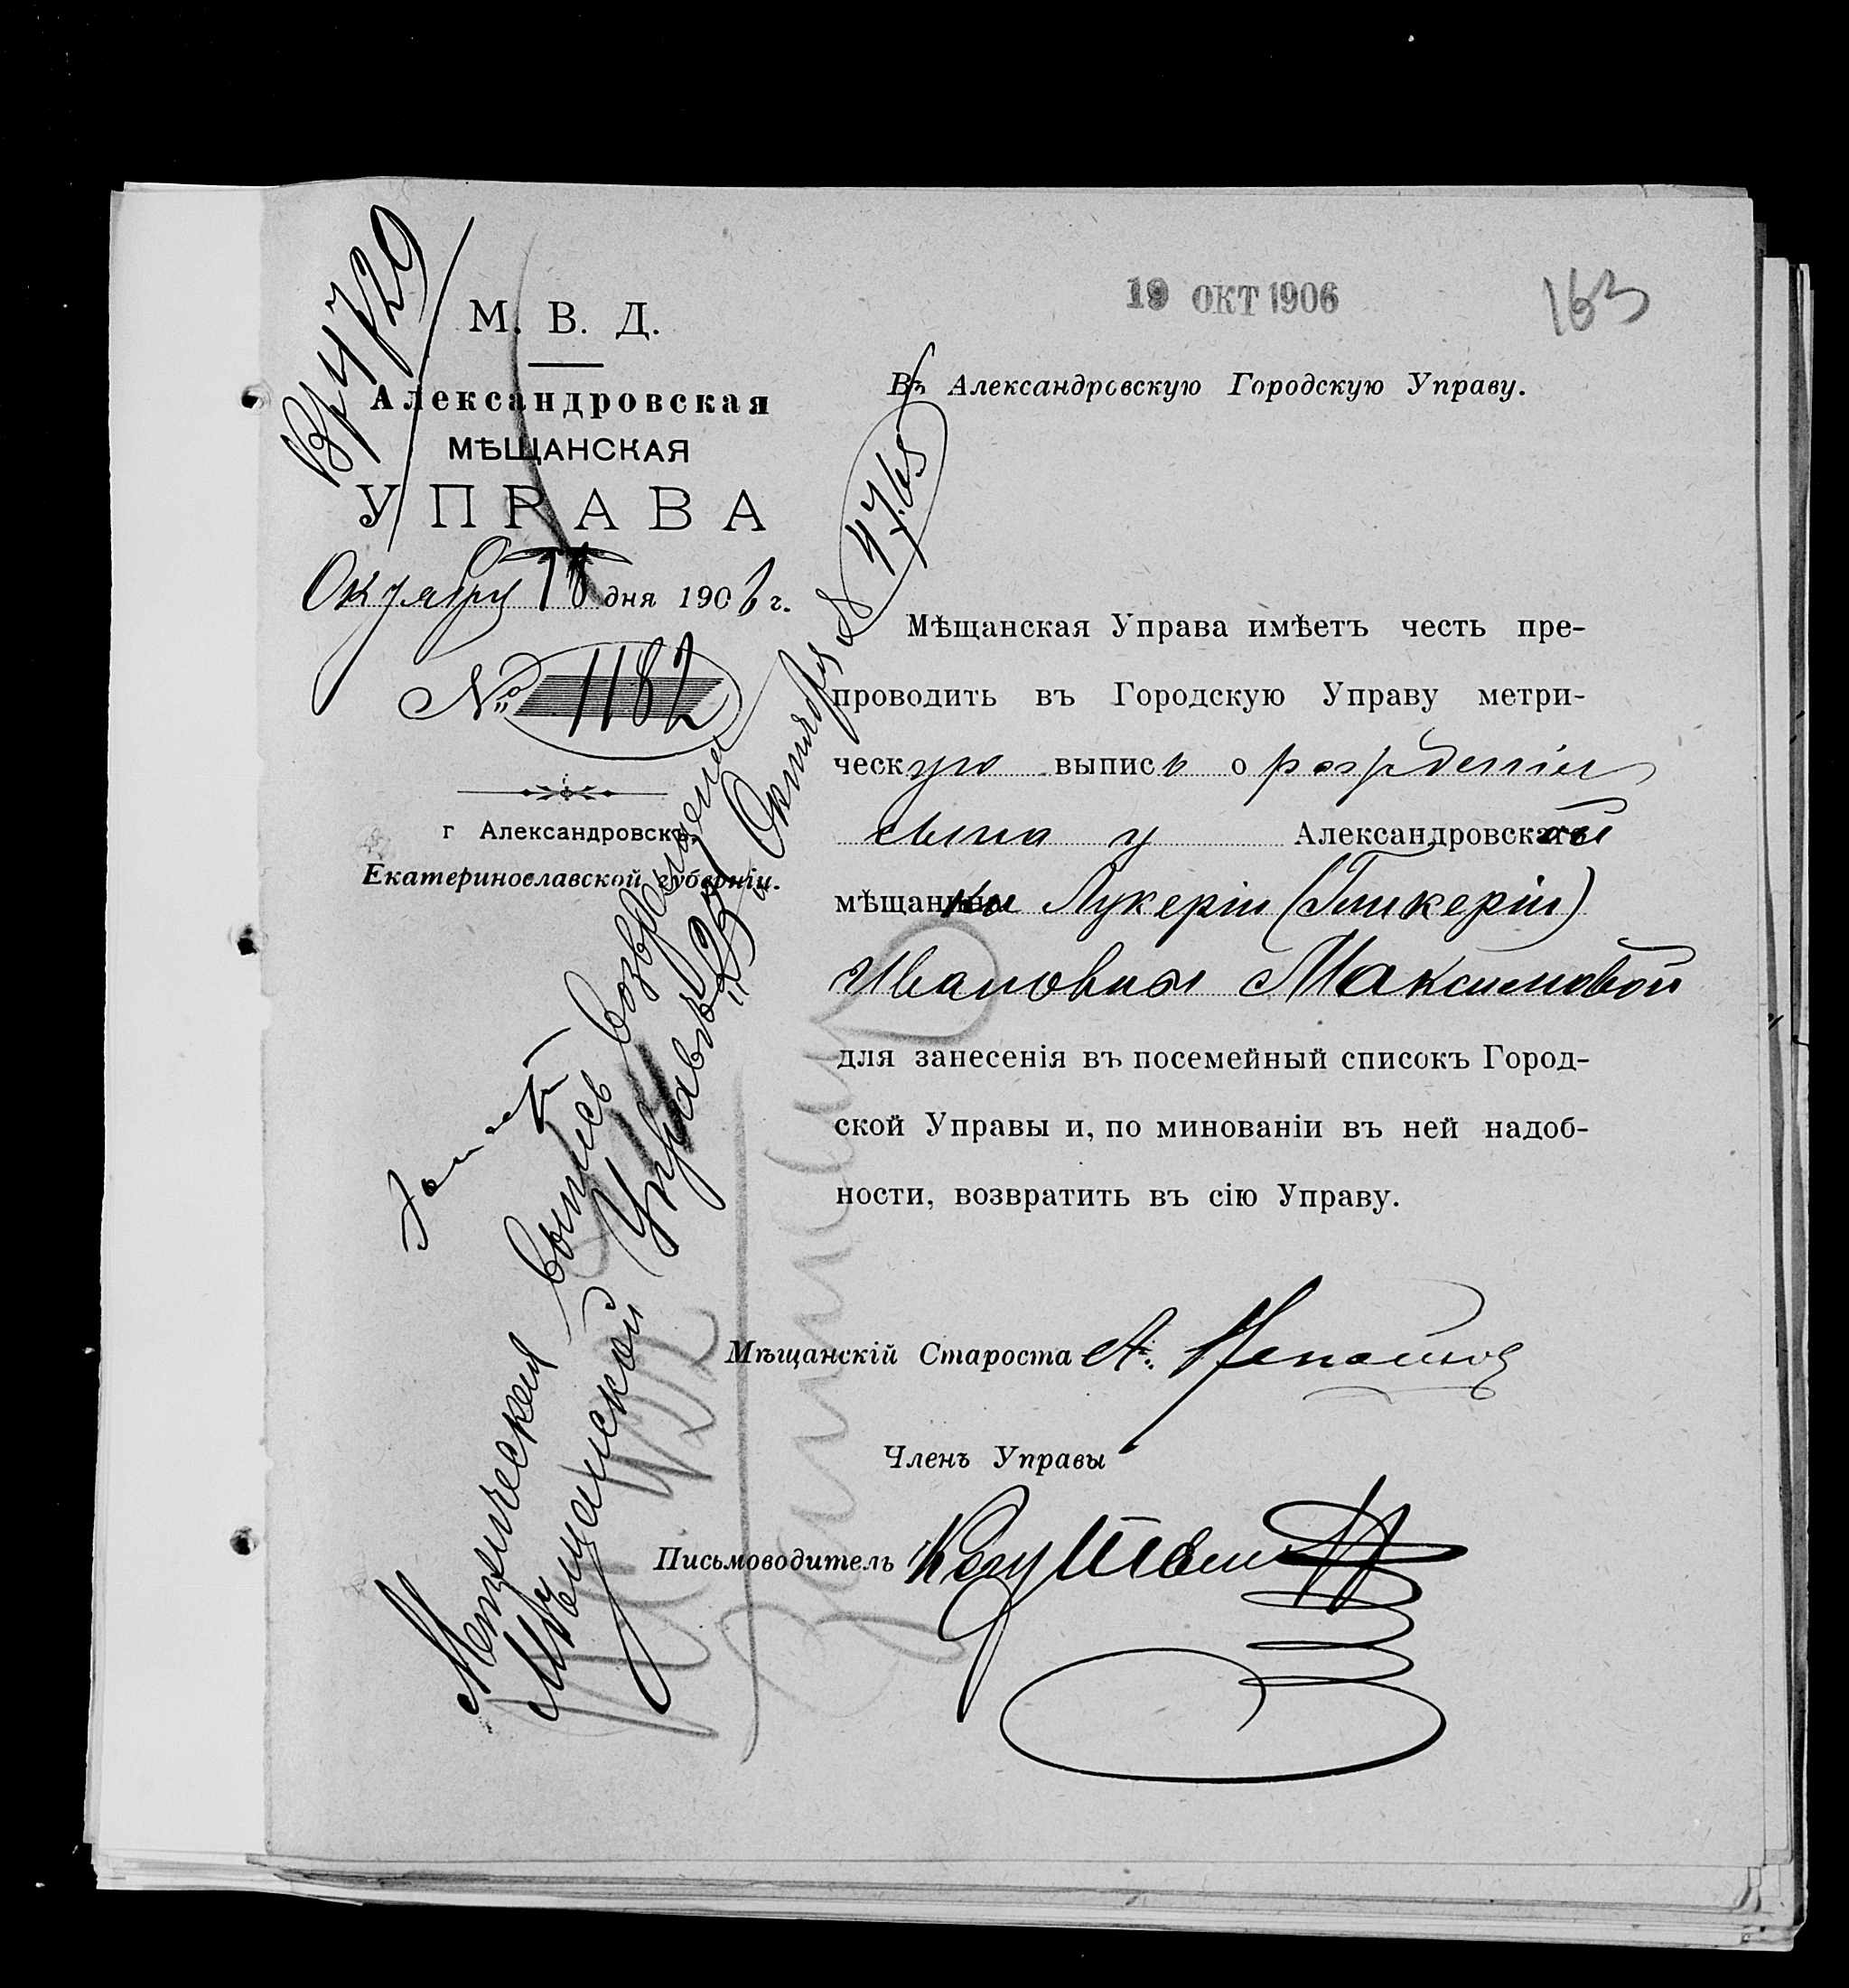 Вр 4729
М. В. Д.
Александровская
МѢЩАНСКАЯ
УПРАВА
Октября 18 дня 1906 г.
№ 1182
г Александровскъ,
Екатеринославской губерніи.
19 ОКТ 1906
163
Въ Александровскую Городскую Управу.
Мѣщанская Управа имѣетъ честь пре-
проводить въ Городскую Управу метри-
ческую выпись о рожденіи
сына у Александровской
мѣщанки Лукеріи (Гликеріи)
Ивановны Максимовой
для занесенія въ посемейный списокъ Город-
ской Управы и, по минованіи въ ней надоб-
ности, возвратить въ сію Управу.
Мѣщанскій Староста А.
Членъ Управы
Письмоводитель
Метрическая выпись возвращена
Мѣщанской Управѣ "23" Октября № 4765